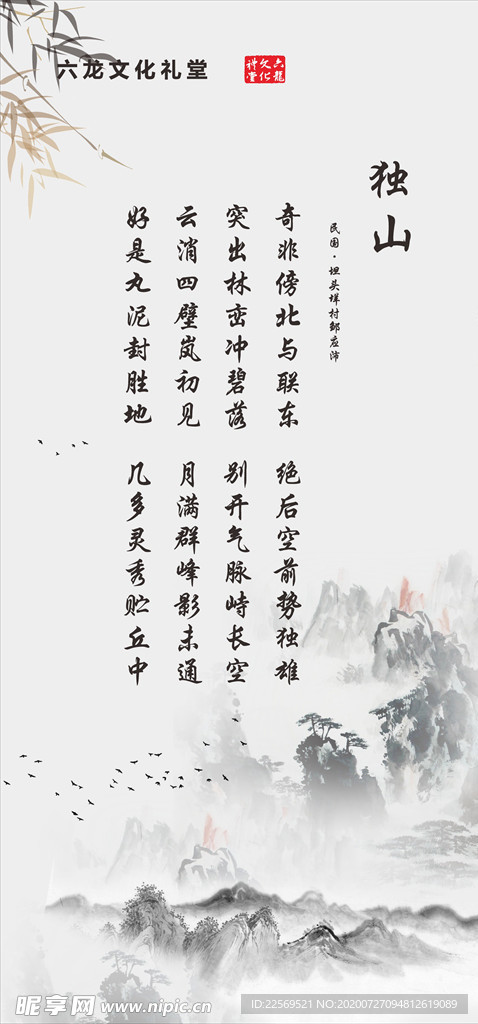 六龙文化礼堂
六龍文化禮堂
独山
民国·坦头垟村邹应沛
奇非傍北与联东 绝后空前势独雄
突出林峦冲碧落 别开气脉峙长空
云消四壁岚初见 月满群峰影未通
好是丸泥封胜地 几多灵秀贮丘中
昵享网 www.nipic.cn
ID:22569521 NO:20200727094812619089